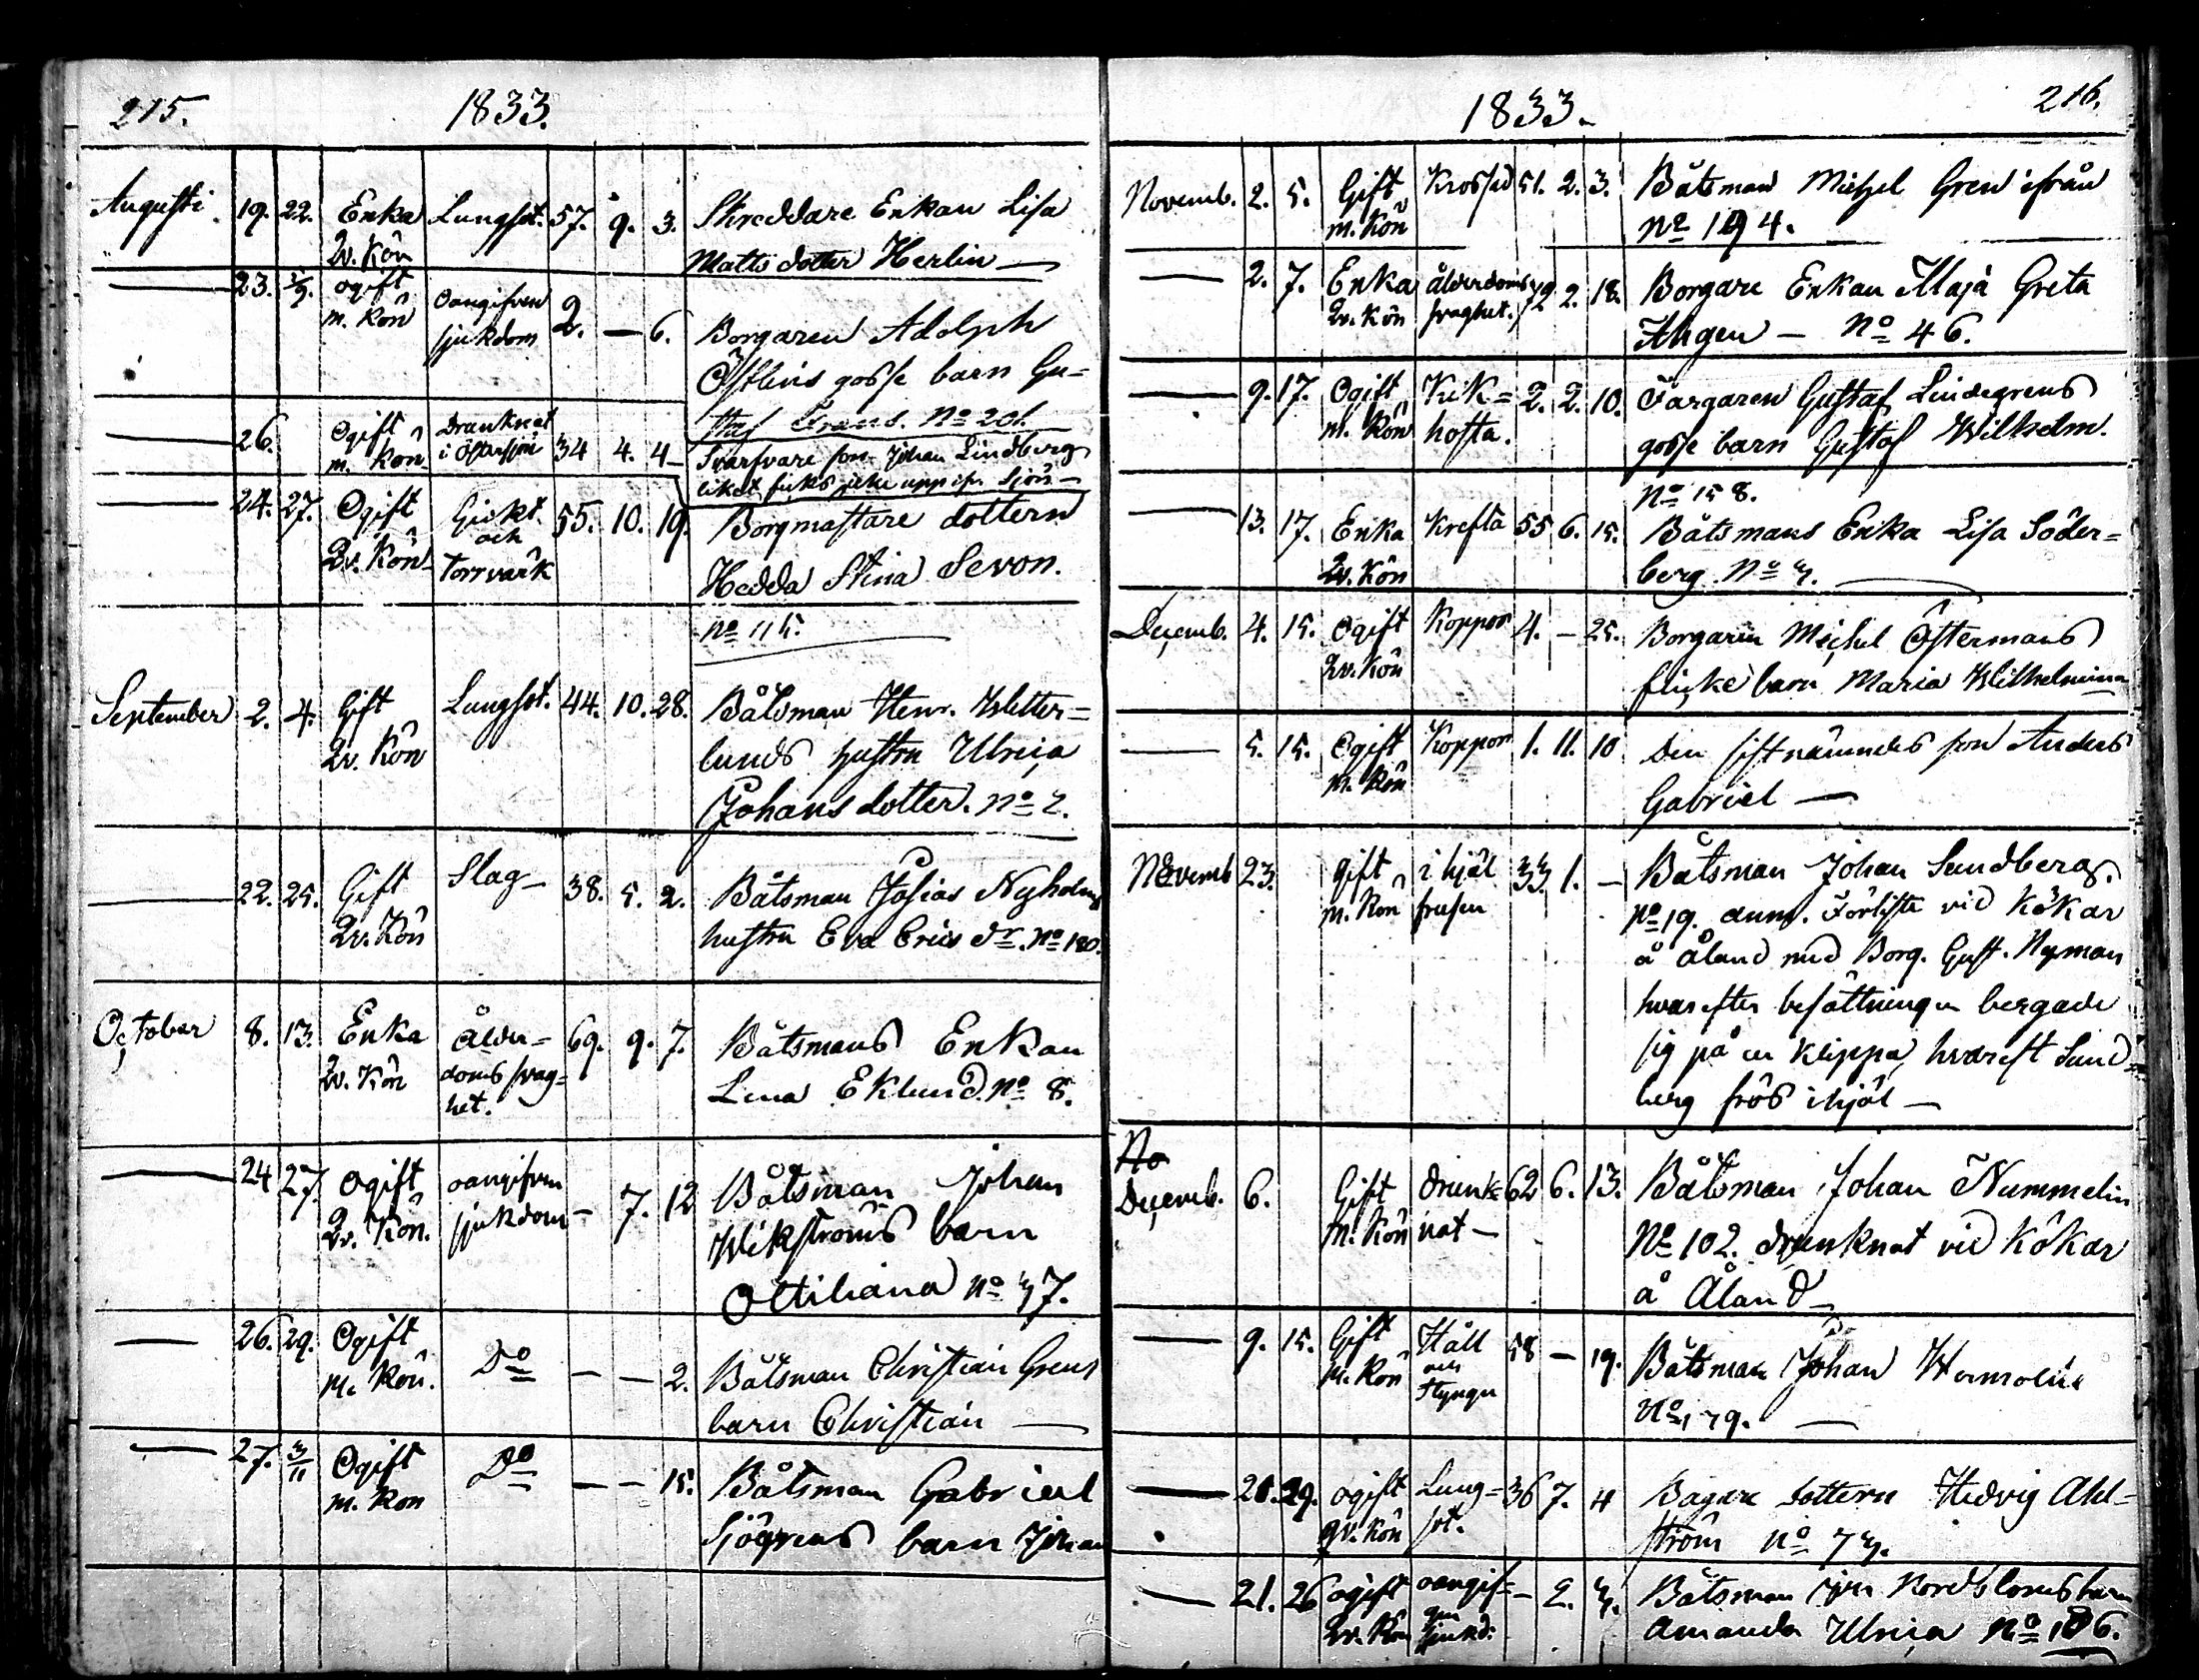 215. 1833.
Augusti. 19. 22. Enka Lungsot. 57. 9. 3. Skreddare Enkan Lisa
Qv. Kön Matts dotter Herlin —
— 23. 1/9. ogift Oangifven 2. — 6. Borgaren Adolph
m. Kön sjukdom Östlins gosse barn Gu=
staf Frans. No 201.
— 26. Ogift Drunknat 34 4. 4 Svarfvare son Johan Lindberg
m. Kön i Östersjön liket ficks icke upp ifr. Sjön —
— 24. 27. Ogift Gickt 55. 10. 19. Borgmästare dottern
Qv. Kön och Hedda Stina Sevon.
Torrvärk No 115.
September 2. 4. Gift Lungsot. 44. 10. 28. Båtsman Henr. Wetter=
Qv. Kön lunds hustru Ulrica
Johans dotter. No 2.
— 22. 25. Gift Slag — 38. 5. 2. Båtsman Josias Nyholms
Qv. Kön hustru Eva Erics dr. No 180.
October 8. 13. Enka Ålder= 69. 9. 7. Båtsmans Enkan
Qv. Kön doms svag= Lena Eklund. No 8.
het.
— 24 27. Ogift oangifven — 7. 12 Båtsman Johan
Qv. Kön. sjukdom Wikströms barn
Ottiliana No 37.
— 26. 29. Ogift Do — — 2. Båtsman Christian Grens
m. Kön. barn Christian —
— 27. 3/11 Ogift Do — — 15. Båtsman Gabriel
m. Kön Sjögrens barn Johan
1833. 216.
Novemb. 2. 5. Gift Krossad 51. 2. 3. Båtsman Michel Gren ifrån
m. Kön No 194.
— 2. 7. Enka ålderdoms 72 2. 18. Borgare Enkan Maja Greta
Qv. Kön svaghet. — No 46.
— 9. 17. Ogift Kik= 2. 2. 10. Färgaren Gustaf Lindegrens
m. Kön hosta. gosse barn Gustaf Wilhelm.
No 158.
— 13. 17. Enka Krefta 55 6. 15. Båtsmans Enka Lisa Söder=
Qv. Kön berg. No 3.
Decemb. 4. 15. Ogift Koppor 4. — 25. Borgaren Michel Östermans
Qv. Kön flicke barn Maria Wilhelmina
— 5. 15. Ogift Koppor 1. 11. 10 Den sistnämndes son Anders
m. Kön Gabriel —
Novemb 23. gift i hjäl 33 1. — Båtsman Johan Sundberg.
m. Kön frusen No 19. anm. Förliste vid Kökar
å Åland med Borg. Gust. Nyman
hvarefter besättningen bergade
sig på en Klippa, hvareft Sund=
berg frös ihjäl —
No
Decemb. 6. Gift drunk= 62 6. 13. Båtsman Johan Nummelin
m. Kön nat — No 102. drunknat vid Kökar
å Åland —
— 9. 15. Gift Håll 58 — 19. Båtsman Johan
m. Kön och No 179. —
Styngn
— 21. 29. ogift Lung= 36 7. 4 Bagare dottern Hedvig Ahl=
qv. Kön sot. ström No 73.
— 21. 26 ogift oangif= — 2. 3. Båtsman Joh Nordbloms barn
Qv. Kön sjukd: Amanda Ulrica No 186.